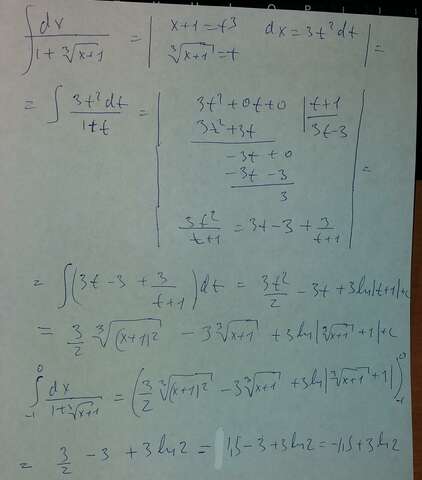 ∫ dx / (1+∛(x+1)) = | x+1=t3 dx=3t²dt
∛(x+1)=t | =
= ∫ 3t²dt / (1+t) = | 3t²+0t+0 | t+1
3t²+3t | 3t-3
-3t+0
-3t-3
3
3t² / (t+1) = 3t-3+ 3/(t+1) | =
= ∫(3t-3+ 3/(t+1))dt = 3t²/2 - 3t + 3ln|t+1|+c
= 3/2 ∛((x+1)²) - 3∛(x+1) + 3ln|∛(x+1)+1|+c
∫₋₁⁰ dx / (1+∛(x+1)) = (3/2 ∛((x+1)²) - 3∛(x+1) + 3ln|∛(x+1)+1|)₋₁⁰
= 3/2 - 3 + 3ln2 = 1,5-3+3ln2=-1,5+3ln2